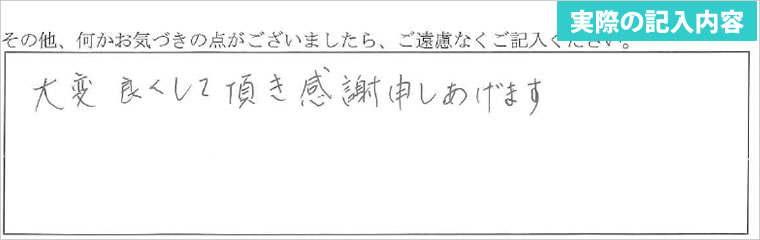 実際の記入内容
その他、何かお気づきの点がございましたら、ご遠慮なくご記入ください。
大変良くして頂き感謝申しあげます